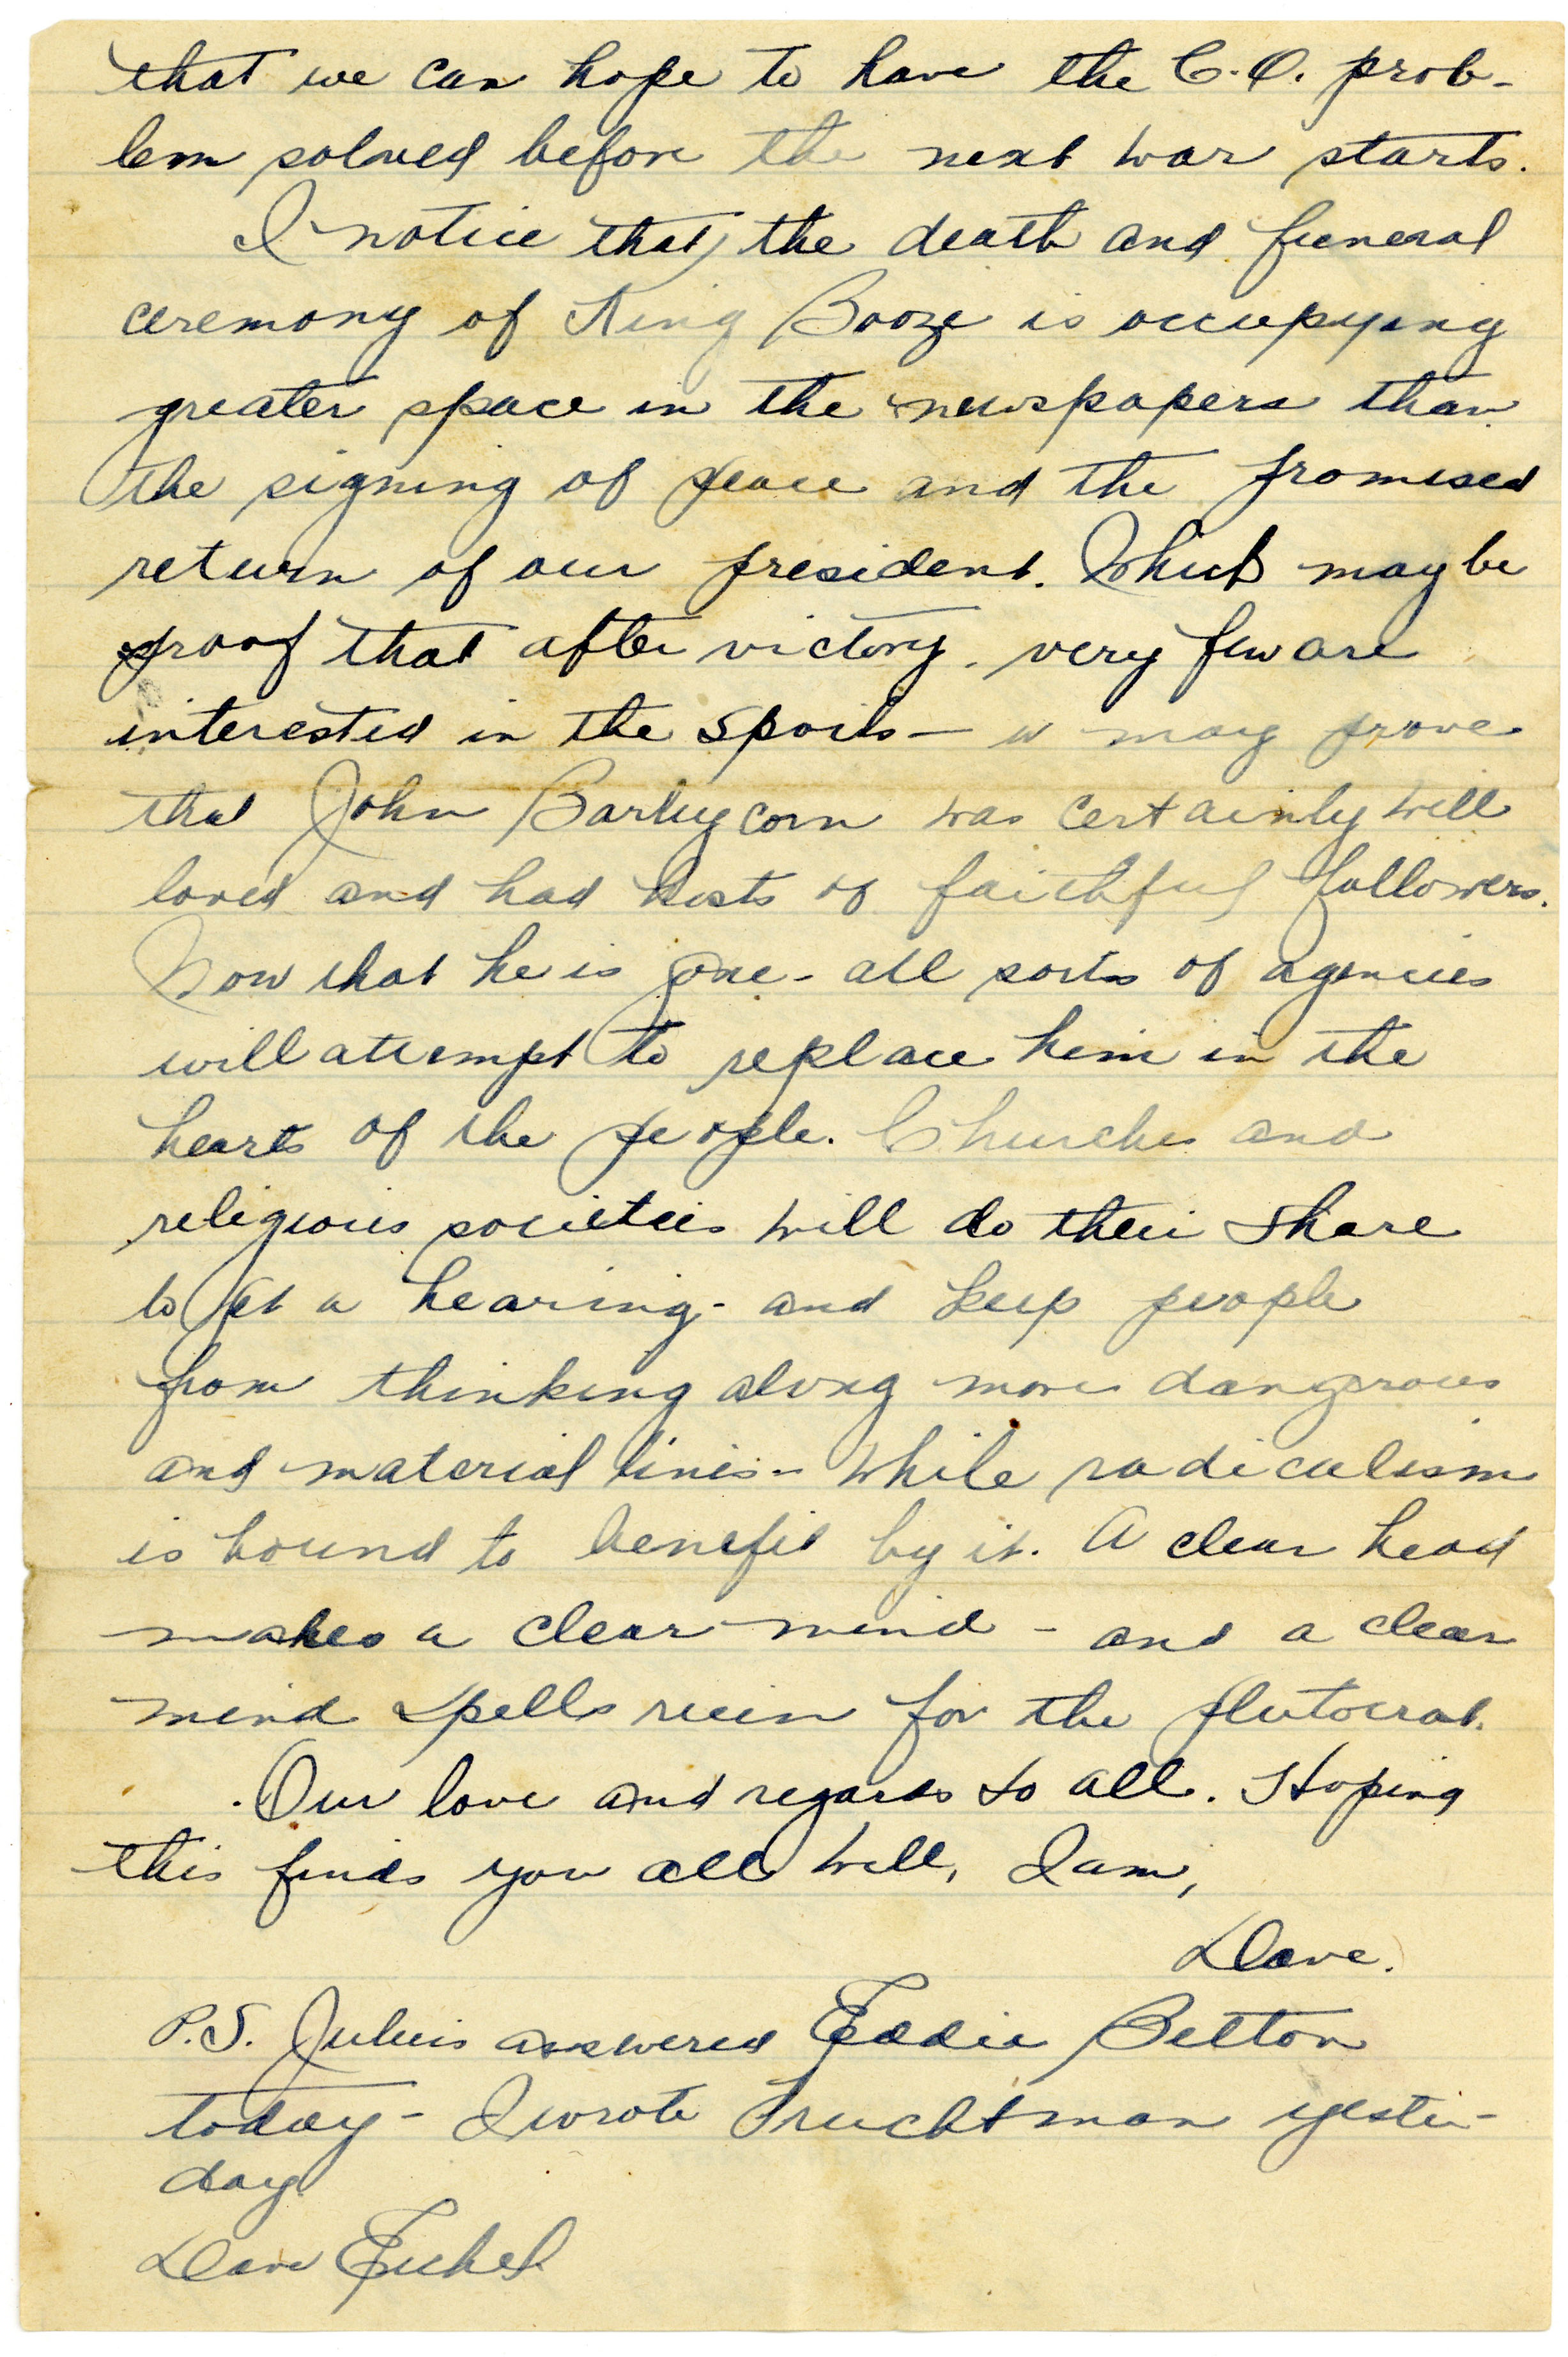 that we can hope to have the C.O. prob-
lem solved before the next war starts.
I notice that, the death and funeral
ceremony of King Booze is occupying
greater space in the newspapers than
the signing of peace and the promised
return of our president. Which may be
proof that after victory, very few are
interested in the spoils— or may prove
that John Barleycorn was certainly well
loved and had hosts of faithful followers.
Now that he is gone - all sorts of agencies
will attempt to replace him in the
hearts of the people. Churches and
religious societies will do their share
to get a hearing - and keep people
from thinking along more dangerous
and material lines - while radicalism
is bound to benefit by it. A clear head
makes a clear mind - and a clear
mind spells ruin for the plutocrat.
Our love and regards to all. Hoping
this finds you all well, I am,
Dave.
P.S. Julius answered Eddie Betton
today - I wrote Fruchtman yester-
day
Dave Eichel